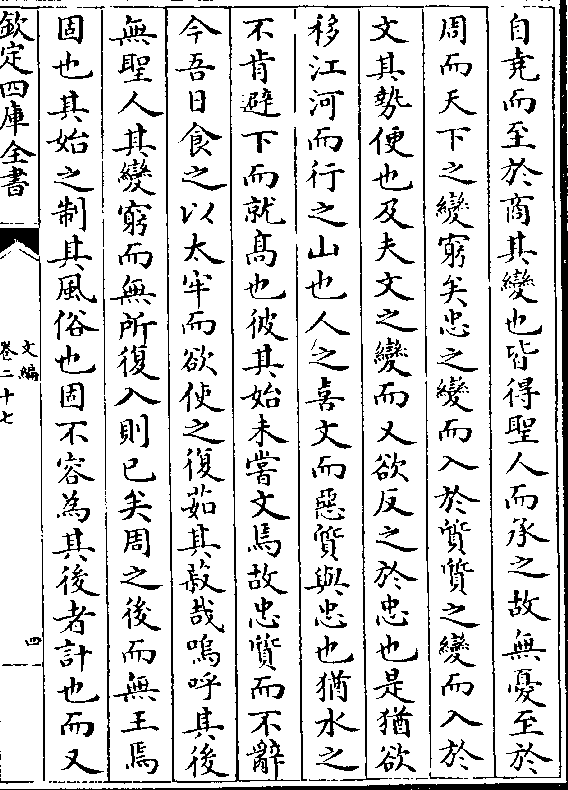 自堯而至於商其變也皆得聖人而承之故無憂至於
周而天下之變窮矣忠之變而入於質質之變而入於
文其勢便也及夫文之變而又欲反之於忠也是猶欲
移江河而行之山也人之喜文而惡質與忠也猶水之
不肯避下而就髙也彼其始未嘗文焉故忠質而不辭
今吾日食之以太牢而欲使之復茹其菽哉嗚呼其後
無聖人其變窮而無所復入則已矣周之後而無王焉
固也其始之制其風俗也固不容為其後者計也而又
欽定四庫全書
文編
卷二十七
四